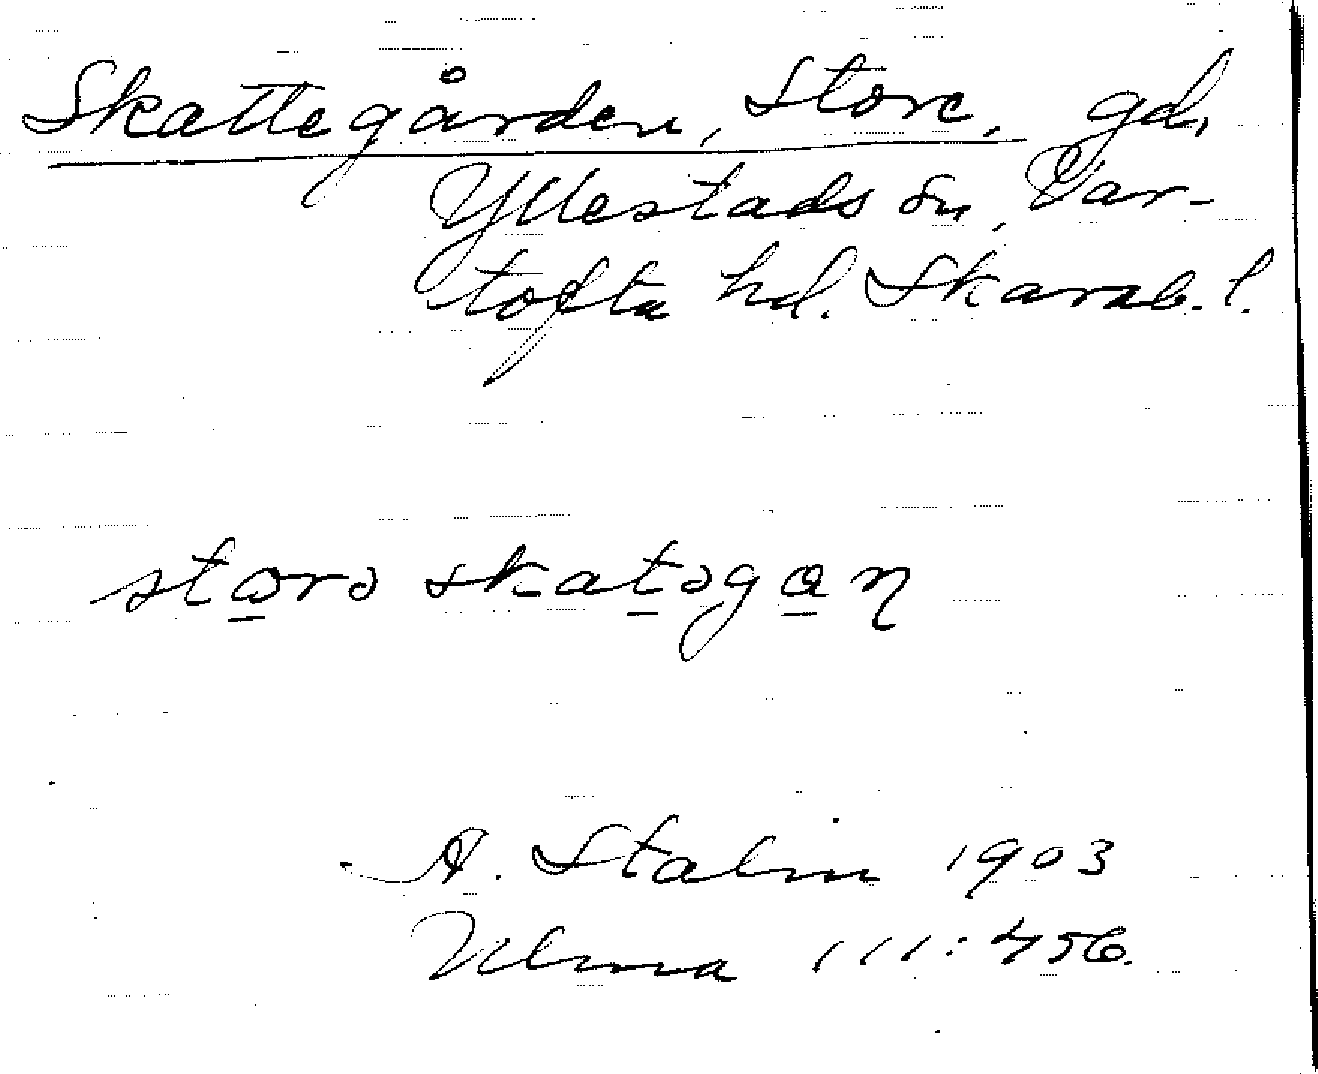 Skattegården, Store, gd,
Yllestads sn, Var-
tofta hd. Skarab. l.
storə skatəgan
A. Stalin 1903
Ulma 111:456.